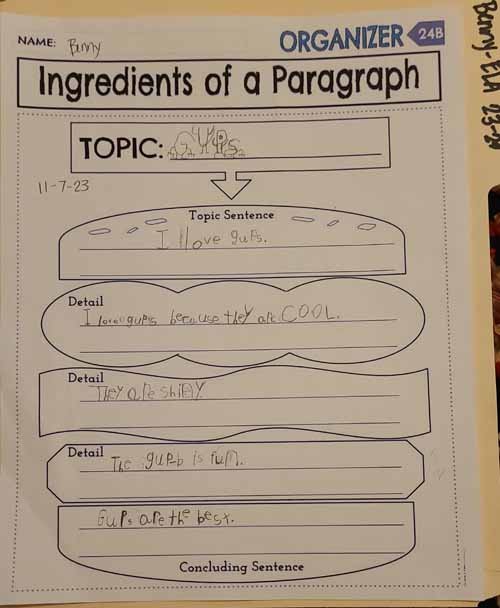 NAME: Benny
ORGANIZER 24B
Ingredients of a Paragraph
TOPIC: GUPs
11-7-23
Topic Sentence
I llove guPs.
Detail
I love gups because they are COOL.
Detail
They are shiny
Detail
The gup-b is fun.
Gups are the best.
Concluding Sentence
Benny-ELA 23-24